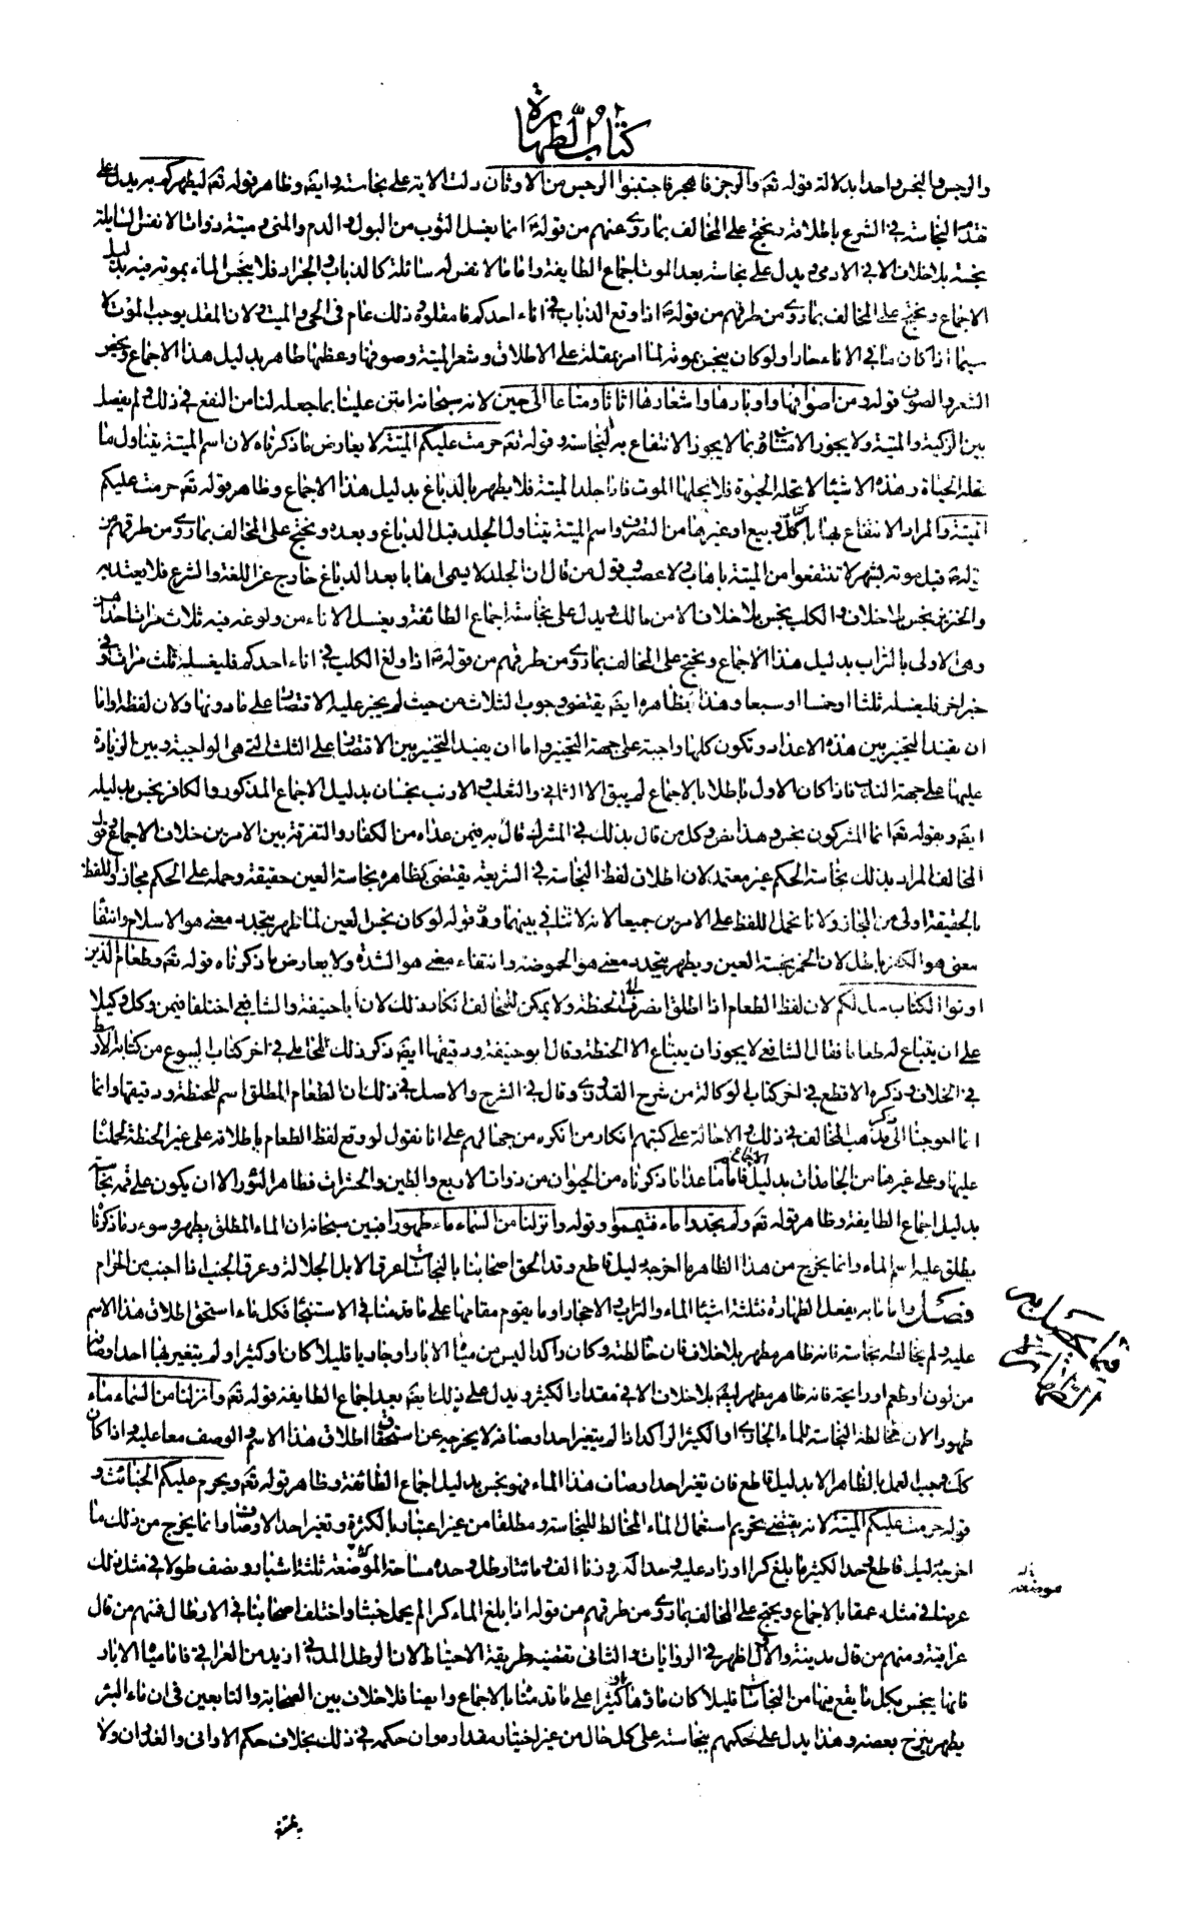 كتاب الطهارة
والرجس والنجس واحد بدلالة قوله تعم والرجز فاهجر فاجتنبوا الرجس من الاوثان دلت الاية على نجاسته وايضم وظاهر قوله تعم ليطهركم به يدل على
تقدم النجاسة في الشرع باطلاقه ونحتج على المخالف بما روى عنهم من قوله انما يغسل الثوب من البول والدم والمنى وميتة ذوات الانفس السايلة
نجسة بلا خلاف الا في الادمى ويدل على نجاسته بعد الموت اجماع الطايفة واما ما لا نفس له سائلة كالذباب والجراد فلا ينجس الماء بموته فيه بدليل
الاجماع ونحتج على المخالف بما روى من طرقهم من قوله اذا وقع الذباب في اناء احدكم فامقلوه وذلك عام في الحى والميت ولان المقل يوجب الموت لا
سيما اذا كان ما في الاناء حارا ولو كان ينجس بموته لما امر بمقله على الاطلاق وشعر الميتة وصوفها وعظمها طاهر بدليل هذا الاجماع ويخص
الشعر والصوف قوله ومن اصوافها واوبارها واشعارها اثاثا ومتاعا الى حين لانه سبحانه امتن علينا بما جعله لنا من النفع في ذلك ولم يفصل
بين الذكية والميتة ولا يجوز الامتنان بما لا يجوز الانتفاع به لنجاسته وقوله تعم حرمت عليكم الميتة لا يعارض ما ذكرناه لان اسم الميتة يتناول ما
تحله الحياة وهذه الاشياء لا تحله الحيوة فلا يحلها الموت فاذا جلد الميتة فلا يطهر بالدباغ بدليل هذا الاجماع وظاهر قوله تعم حرمت عليكم
الميتة والمراد الانتفاع بها باكل وبيع او غيرها من التصرف واسم الميتة يتناول الجلد قبل الدباغ وبعده ونحتج على المخالف بما روى من طرقهم من
قوله قبل موته بشهر لا تنتفعوا من الميتة باهاب ولا عصب وقول من قال ان الجلد لا يسمى اهابا بعد الدباغ خارج عن اللغة والشرع فلا يعتد به
والخنزير نجس بلا خلاف والكلب نجس بلا خلاف الا من مالك ويدل على نجاسته اجماع الطائفة ويغسل الاناء من ولوغه فيه ثلاث مرات احداهن
وهى الاولى بالتراب بدليل هذا الاجماع ونحتج على المخالف بما روى من طرقهم من قوله اذا ولغ الكلب في اناء احدكم فليغسله ثلث مرات وفى
خبر اخر فليغسله ثلثا او خمسا او سبعا وهذا بظاهره ايضم يقتضى وجوب الثلاث من حيث لم يجز عليه الاقتصار على ما دونها ولان لفظه او اما
ان يفيد التخيير بين هذه الاعداد وتكون كلها واجبة على جهة التخيير واما ان يفيد التخيير بين الاقتصار على الثلث التى هى الواجبة وبين الزيادة
عليها على جهة الندب فاذا كان الاول باطلا بالاجماع لم يبق الا الثانى والثعلب والارنب نجسان بدليل الاجماع المذكور والكافر نجس بدليله
ايضم وبقوله تعم انما المشركون نجس وهذا نص وكل من قال بذلك في المشرك قال به فيمن عداه من الكفار والتفرقة بين الامرين خلاف الاجماع وقول
المخالف المراد بذلك نجاسة الحكم غير معتمد لان اطلاق لفظ النجاسة في الشريعة يقتضى بظاهره نجاسة العين حقيقة وحمله على الحكم مجاز واللفظ
بالحقيقة اولى من المجاز ولانا نحمل اللفظ على الامرين جميعا لانه لا تنافى بينهما وقوله لو كان نجس العين لما طهر بتجدد معنى هو الاسلام وانتفاء
معنى هو الكفر باطل لان الخمر نجسة العين ويطهر بتجدد معنى هو الحموضة وانتفاء معنى هو الشدة ولا يعارض ما ذكرناه قوله تعم وطعام الذين
اوتوا الكتاب حل لكم لان لفظ الطعام اذا اطلق انصرف الى الحنطة ولا يمكن للمخالف انكار ذلك لان ابا حنيفة والشافعى اختلفا فيمن وكل وكيلا
على ان يبتاع له طعاما فقال الشافعى لا يجوز ان يبتاع الا الحنطة وقال ابو حنيفة ودقيقها ايضم ذكر ذلك المحاملى في اخر كتاب البيوع من كتابه الاوسط
في الخلاف وذكره الاقطع في اخر كتاب الوكالة من شرح القدورى وقال في الشرح والاصل في ذلك ان الطعام المطلق اسم للحنطة ودقيقها وانما
انما احوجنا الى ذكر مذهب المخالف في ذلك والاحالة على كتبهم انكار من انكره من جهالهم على انا نقول لو وقع لفظ الطعام باطلاقه على غير الحنطة لحملنا
عليها وعلى غيرها من الجامدات بدليل الاجماع فاما ما عدا ما ذكرناه من الحيوان من ذوات الاربع والطير والحشرات فطاهر السؤر الا ان يكون على فمه نجاسة
بدليل اجماع الطايفة وظاهر قوله تعم ولم تجدوا ماء فتيمموا وقوله وانزلنا من السماء ماء طهورا فبين سبحانه ان الماء المطلق يطهر وسوء رما ذكرنا
يطلق عليه اسم الماء وانما يخرج من هذا الظاهر ما اخرجه دليل قاطع وقد الحق اصحابنا بالنجاسات عرق الابل الجلالة وعرق الجنب اذا اجنب من الحرام
فصل واما ما به يفعل الطهارة فثلثة اشياء الماء والتراب والاحجار او ما يقوم مقامها على ما قدمنا في الاستنجاء فكل ماء استحق اطلاق هذا الاسم
عليه ولم يخالطه نجاسة فانه طاهر مطهر بلا خلاف فان خالطته وكان راكدا ليس من مياه الابار او جاريا قليلا كان او كثيرا ولم يتغير بها احد اوصافه
من لون او طعم او رايحة فانه طاهر مطهر ايضم بلا خلاف الا في مقدار الكثير ويدل على ذلك ايضم بعد اجماع الطايفة قوله تعم وانزلنا من السماء ماء
طهورا لان مخالطة النجاسة للماء الجارى او الكثير الراكد اذا لم يتغير احد اوصافه لا يخرجه عن استحقاق اطلاق هذا الاسم والوصف معا عليه واذا كان
كذلك وجب العمل بالظاهر الا بدليل قاطع فان تغير احد اوصاف هذا الماء فهو نجس بدليل اجماع الطائفة وظاهر قوله تعم ويحرم عليكم الخبائث و
قوله حرمت عليكم الميتة لانه يقتضى تحريم استعمال الماء المخالط للنجاسة ومطلقا من غير اعتبار بالكثرة وتغير احد الاوصاف وانما يخرج من ذلك ما
اخرجه دليل قاطع وحد الكثير ما بلغ كرا او زاد عليه وحد الكر وزنا الف ومائتا رطل وحده مساحة الموضعه ثلثة اشبار ونصف طولا في مثل ذلك
عرضا في مثله عمقا بالاجماع ويحتج على المخالف بما روى من طرقهم من قوله اذا بلغ الماء كرا لم يحمل خبثا واختلف اصحابنا في الارطال فمنهم من قال
عراقية ومنهم من قال مدينة والاول اظهر في الروايات والثانى تقتضيه طريقة الاحتياط لان الرطل المدنى ازيد من العراقى فاما مياه الابار
فانها ينجس بكل ما يقع فيها من النجاسات قليلا كان ماؤها او كثيرا على ما قدمنا بالاجماع وايضا فلا خلاف بين الصحابة والتابعين في ان ماء البئر
يطهر بنزح بعضه وهذا يدل على حكمهم بنجاسته على كل حال من غير اختيار مقداره وان حكمه في ذلك بخلاف حكم الاوانى والغدران ولا
فيما يحصل به
الطهارة
موضعه